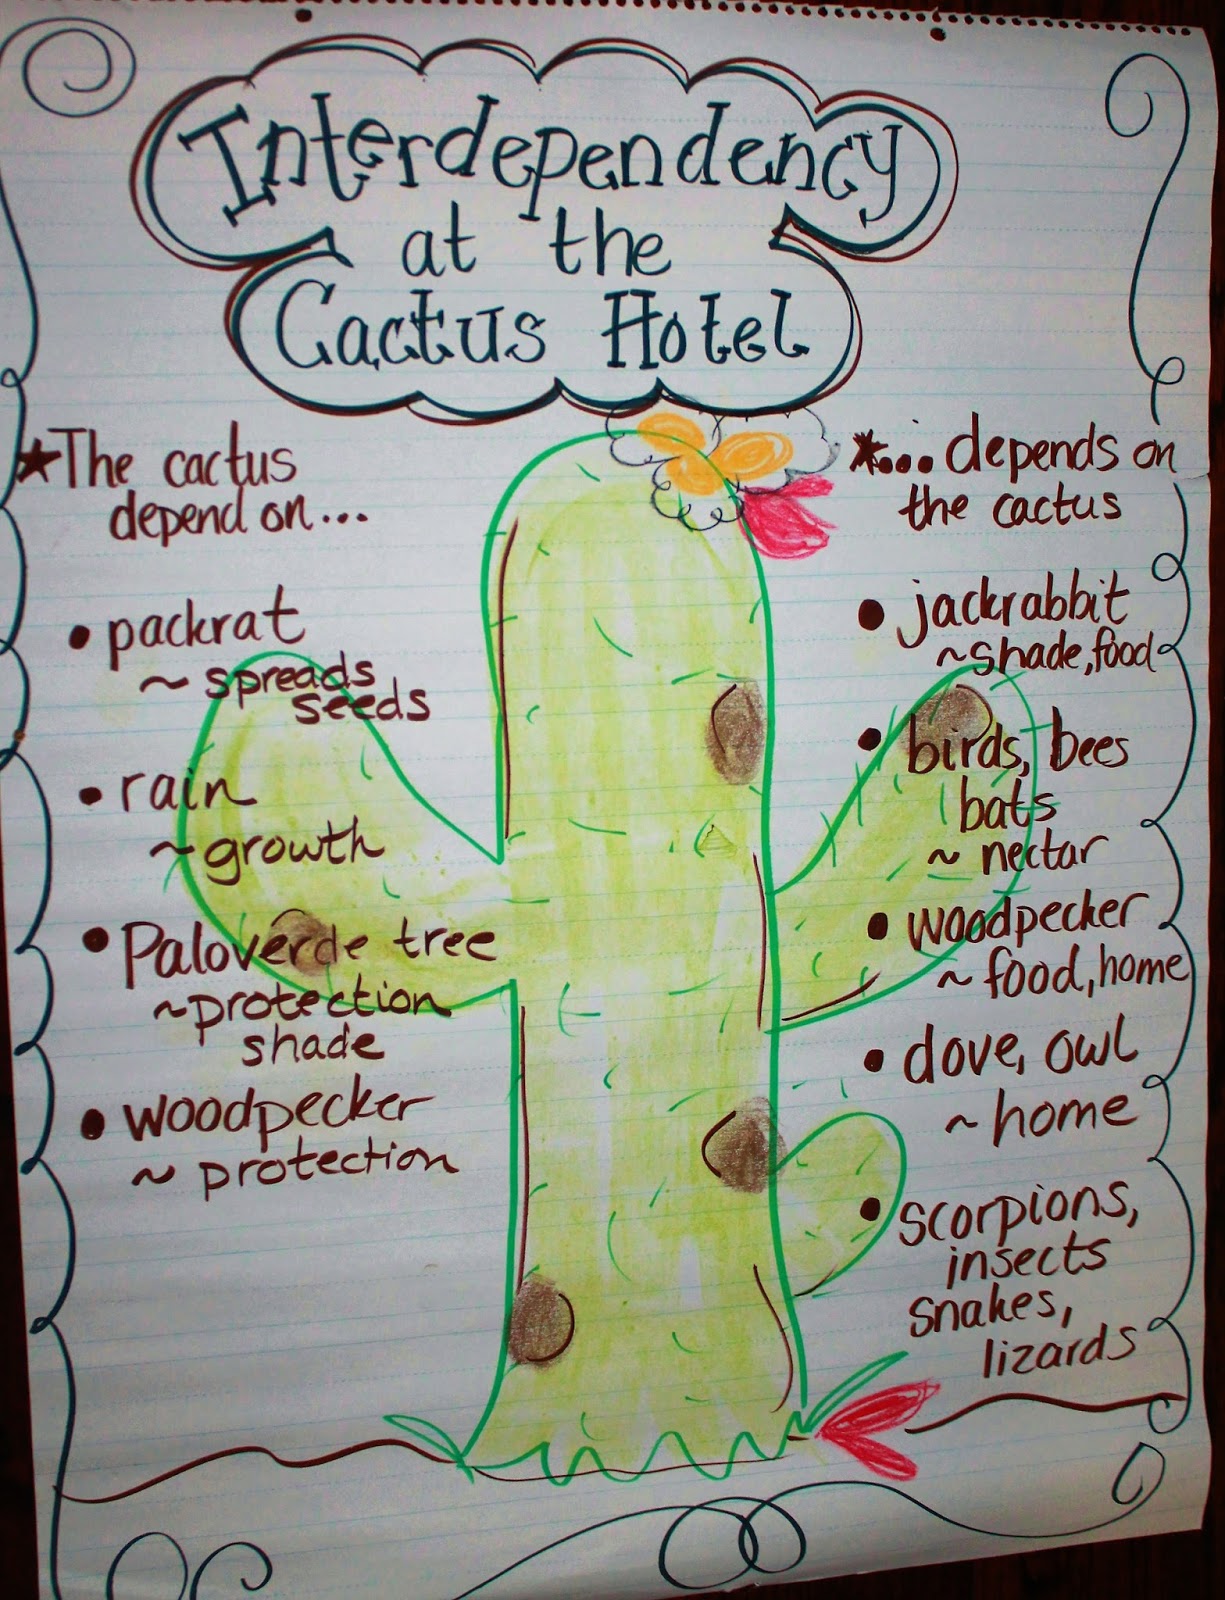 Interdependency
at the
Cactus Hotel
★The cactus
depend on...
• packrat
~ spreads
seeds
• rain
~ growth
• Paloverde tree
~protection
shade
• woodpecker
~ protection
★... depends on
the cactus
• jackrabbit
~shade, food
• birds, bees
bats
~ nectar
• woodpecker
~ food, home
• dove, owl
~ home
• scorpions,
insects
snakes,
lizards